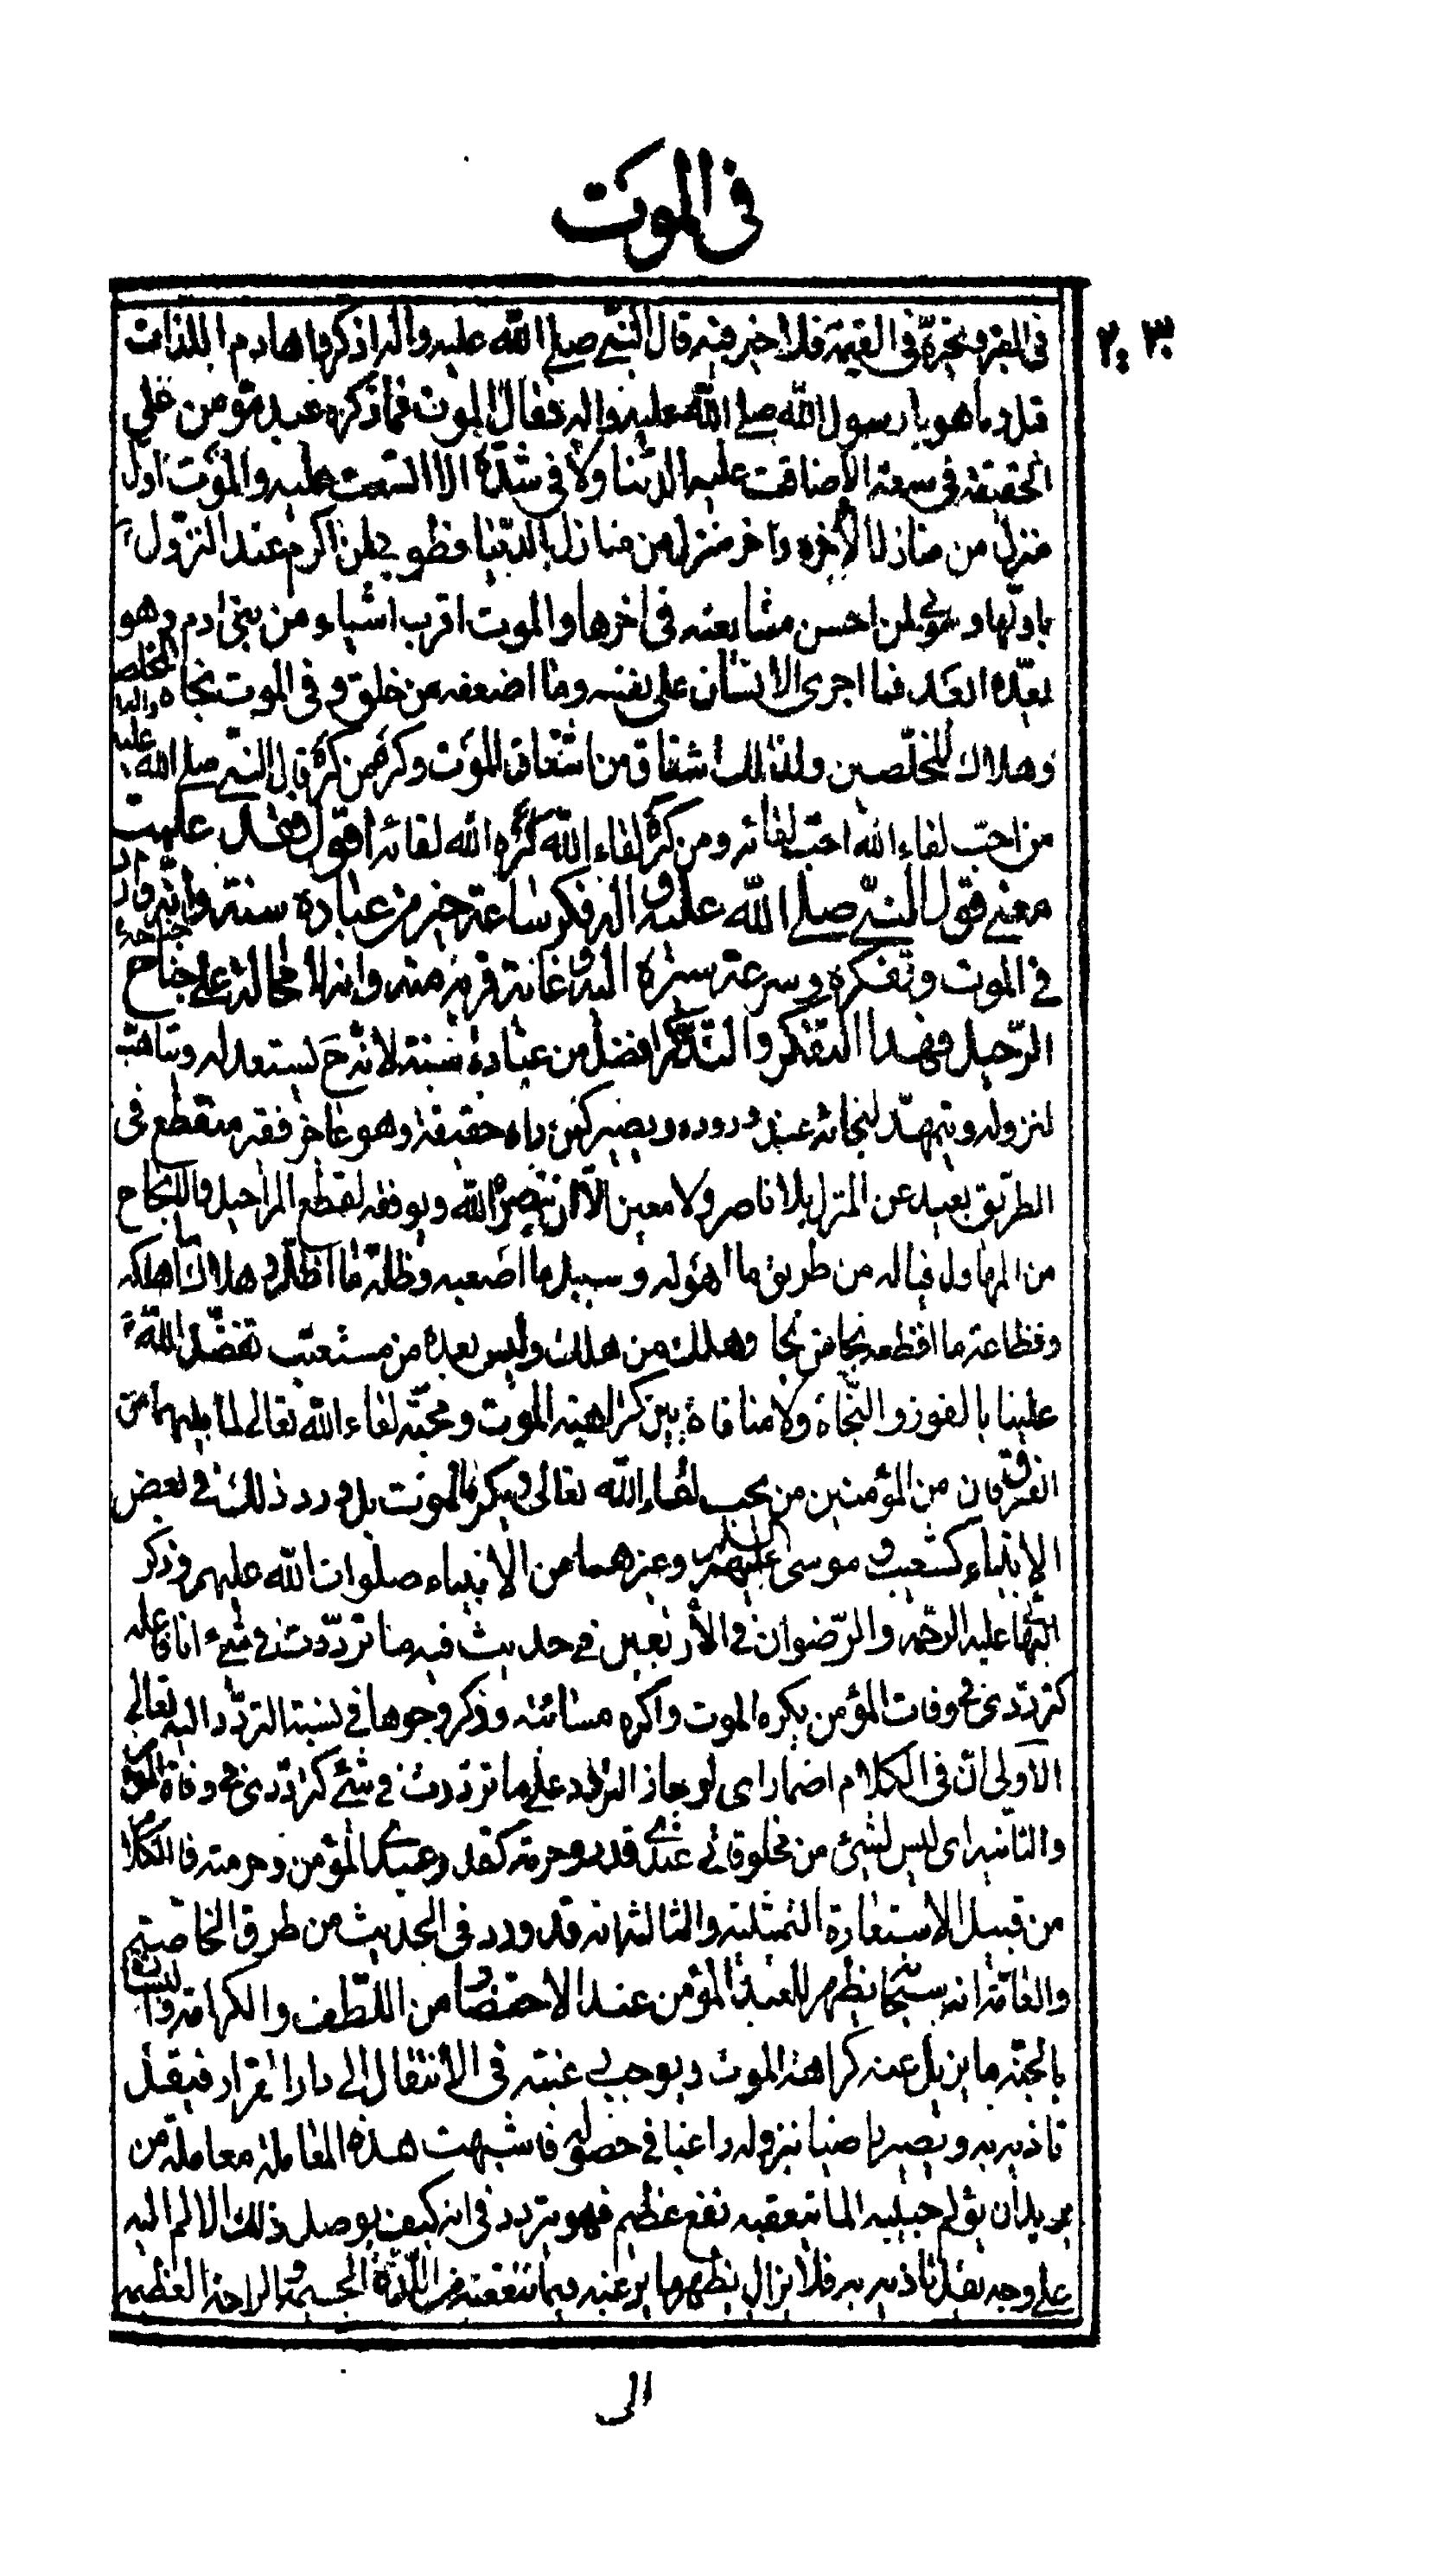 في الموت
٢٠٣
في القبر و تحيّره في القيمة فلا خير فيه قال النبي صلى الله عليه واله اذكروا هادم اللذات
قيل وما هو يا رسول الله صلى الله عليه واله فقال الموت فما ذكره عبد مؤمن على
الحقيقة في سعة الا ضاقت عليه الدنيا ولا في شدّة الا اتسعت عليه والموت اول
منزل من منازل الاخرة واخر منزل من منازل الدنيا فطوبى لمن اكرم عند النزول
باولها و طوبى لمن احسن مشايعته في اخرها والموت اقرب اشياء من بني ادم وهو
يعدّه ابعد فما اجرى الانسان على نفسه وما اضعفه من خلق و في الموت نجاة المخلصين
وهلاك للمخلّصين ولذلك اشتاق من اشتاق الموت وكره من كره قال النبي صلى الله عليه واله
من احبّ لقاء الله احبّ لقائه ومن كره لقاء الله كره الله لقائه اقول فقد علمت
معنى قول النبي صلى الله عليه واله فكر ساعة خير من عبادة سنة وانه
في الموت وتفكره وسرعة سيره اليه وغاية قربه منه وانه لا محالة على جناح
الرّحيل فهذا التفكر والتذكر افضل من عبادة سنة لانه ح يستعد له ويتاهّب
لنزوله ويتمهّد لنجاته عند وروده ويصير كمن راه حقيقة وهو عاجز فقير منقطع في
الطريق بعيد عن المنزل بلا ناصر ولا معين الّا ان ينصره الله ويوفقه لقطع المراحل والنجاح
من المهاول فياله من طريق ما اهوله و سبيل ما اصعبه وظلمة ما اظلمه وهلاك ما اهلكه
وفظاعة ما افظعه نجا من نجا وهلك من هلك وليس بعده من مستعتب تفضّل الله
علينا بالفوز والنّجاة ولا منافاة بين كراهية الموت ومحبّة لقاء الله تعالى لما بينهما من
الفرق فان من المؤمنين من يحب لقاء الله تعالى ويكره الموت بل ورد ذلك في بعض
الانبياء كشعيب و موسى عليهما السلام وغيرهما من الانبياء صلوات الله عليهم وذكر
البهائي عليه الرحمة والرّضوان في الاربعين في حديث فيه ما تردّدت في شيء انا فاعله
كتردّدي في وفات المؤمن يكره الموت واكره مسائته وذكر وجوها في نسبة التردّد اليه تعالى
الاولى ان في الكلام اضمارا اى لو جاز التردد على ما ترددت في شيء كتردّدي في وفاة المؤمن
والثانية اى ليس لشيئ من مخلوقاتى عندي قدر وحرمة كقدر عبدي المؤمن وحرمته فالكلام
من قبيل الاستعارة التمثيلية والثالثة انه قد ورد في الحديث من طرق الخاصّة
والعامّة انه سبحانه يظهر للعبد المؤمن عند الاحتضار من اللّطف والكرامة والبشارة
بالجنّة ما يزيل عنه كراهة الموت ويوجب رغبته في الانتقال الى دار القرار فيقل
تاذيه به ويصير راضيا بنزوله راغبا في حصوله فاشبهت هذه المعاملة معاملة من
يريد ان يؤلم حبيبه الما يتعقبه نفع عظيم فهو يتردد في انه كيف يوصل ذلك الالم اليه
على وجه يقل تاذيه به فلا يزال يظهر ما يرغبه فيما يتعقبه من اللّذة الجسيمة والراحة العظيمة
الى